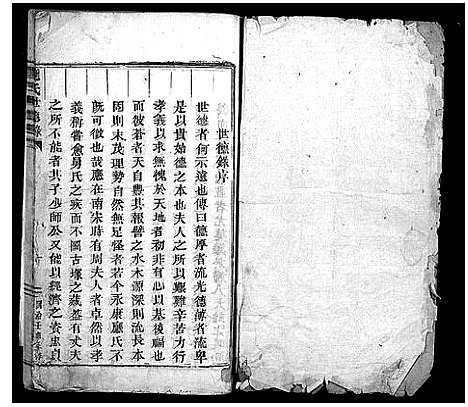 世德錄序
世德者何示遠也傳曰德厚者流光德薄者流卑
是以貴始德之本也夫人之所以艱難辛苦力行
孝義以求無愧於天地者初非有心以基後福也
而彼蒼者天自與其報譬之水木源深則流長本
固則末茂理勢自然無足怪者若今永康應氏不
既可徵也哉應在南宋時有周夫人者卓然以孝
義稱嘗愈舅氏之疾而不圖古塚之藏蓋有丈夫
之所不能者其子少師公又能以經濟之資忠貞
氏世德錄